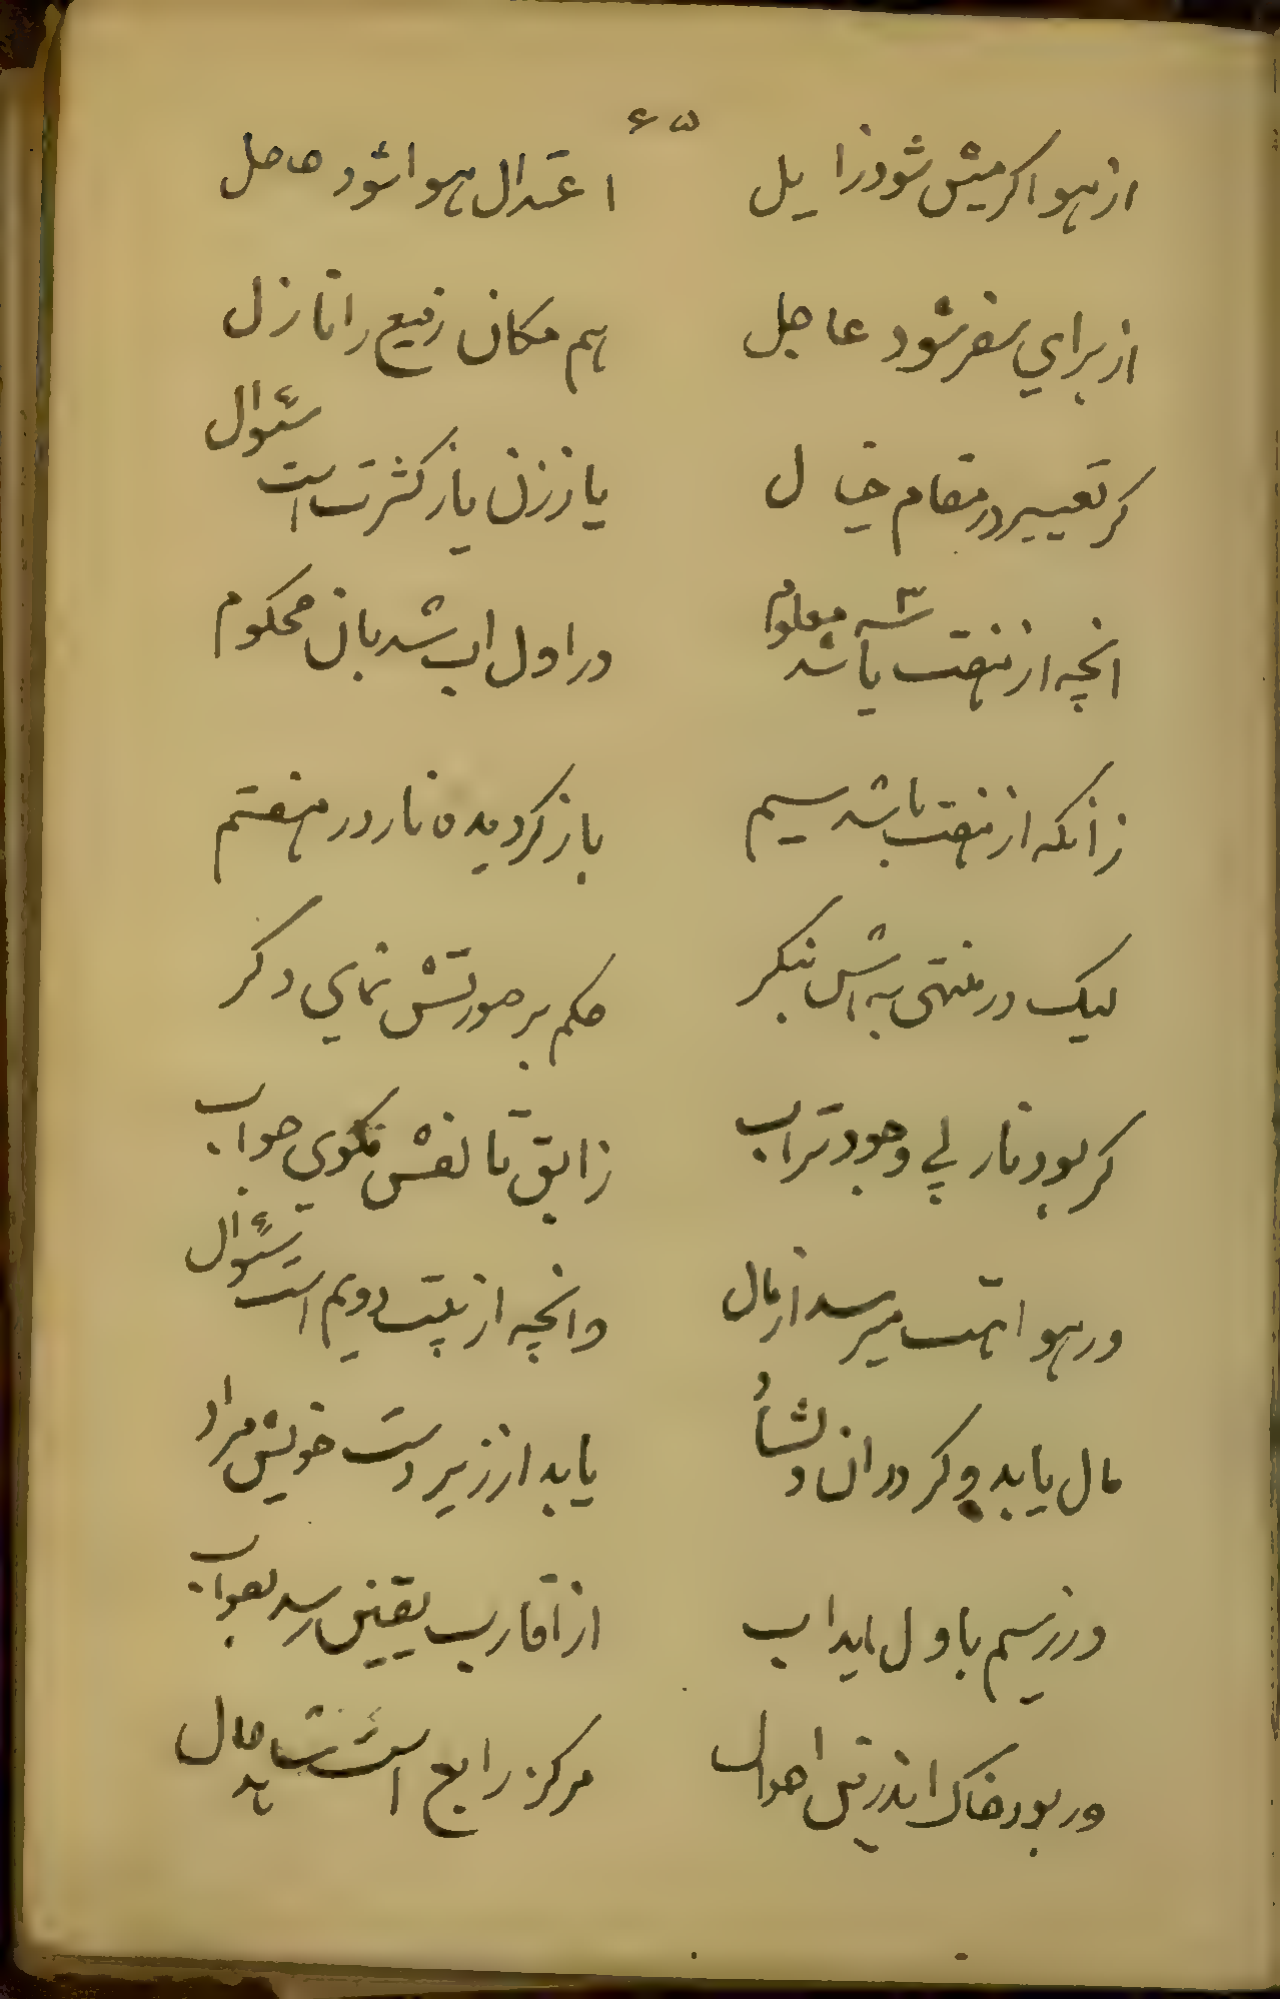 ۶۵
از هوا کر میش شود زایل اعتدال هوا شود حاصل
از برای سفر شود عاجل هم مکان رفیع را نازل
کر تعییر در مقام خیال یا ززن یا ز کثرت است سئوال
انچه از منهقت یا شد معلوم در اول اب شد بان محکوم
زانکه از منهقت باشد سیم باز کردیده نار در هفتم
لیک در منتهی به اش بنکر حکم بر صورتش نمای دکر
کر بود نار بی وجود تراب زابق تا لفش نکوی جواب
ور هوا تهمت میرسد از مال وانچه از بیت دویم است سئوال
مال یابد و کر دران و لشاد یابد از زیر دست خویش مراد
ور ز سیم باول اید اب از اقارب یقین رسد بصواب
ور بود خاک اندرین احوال مرکز رابع است شاهد حال